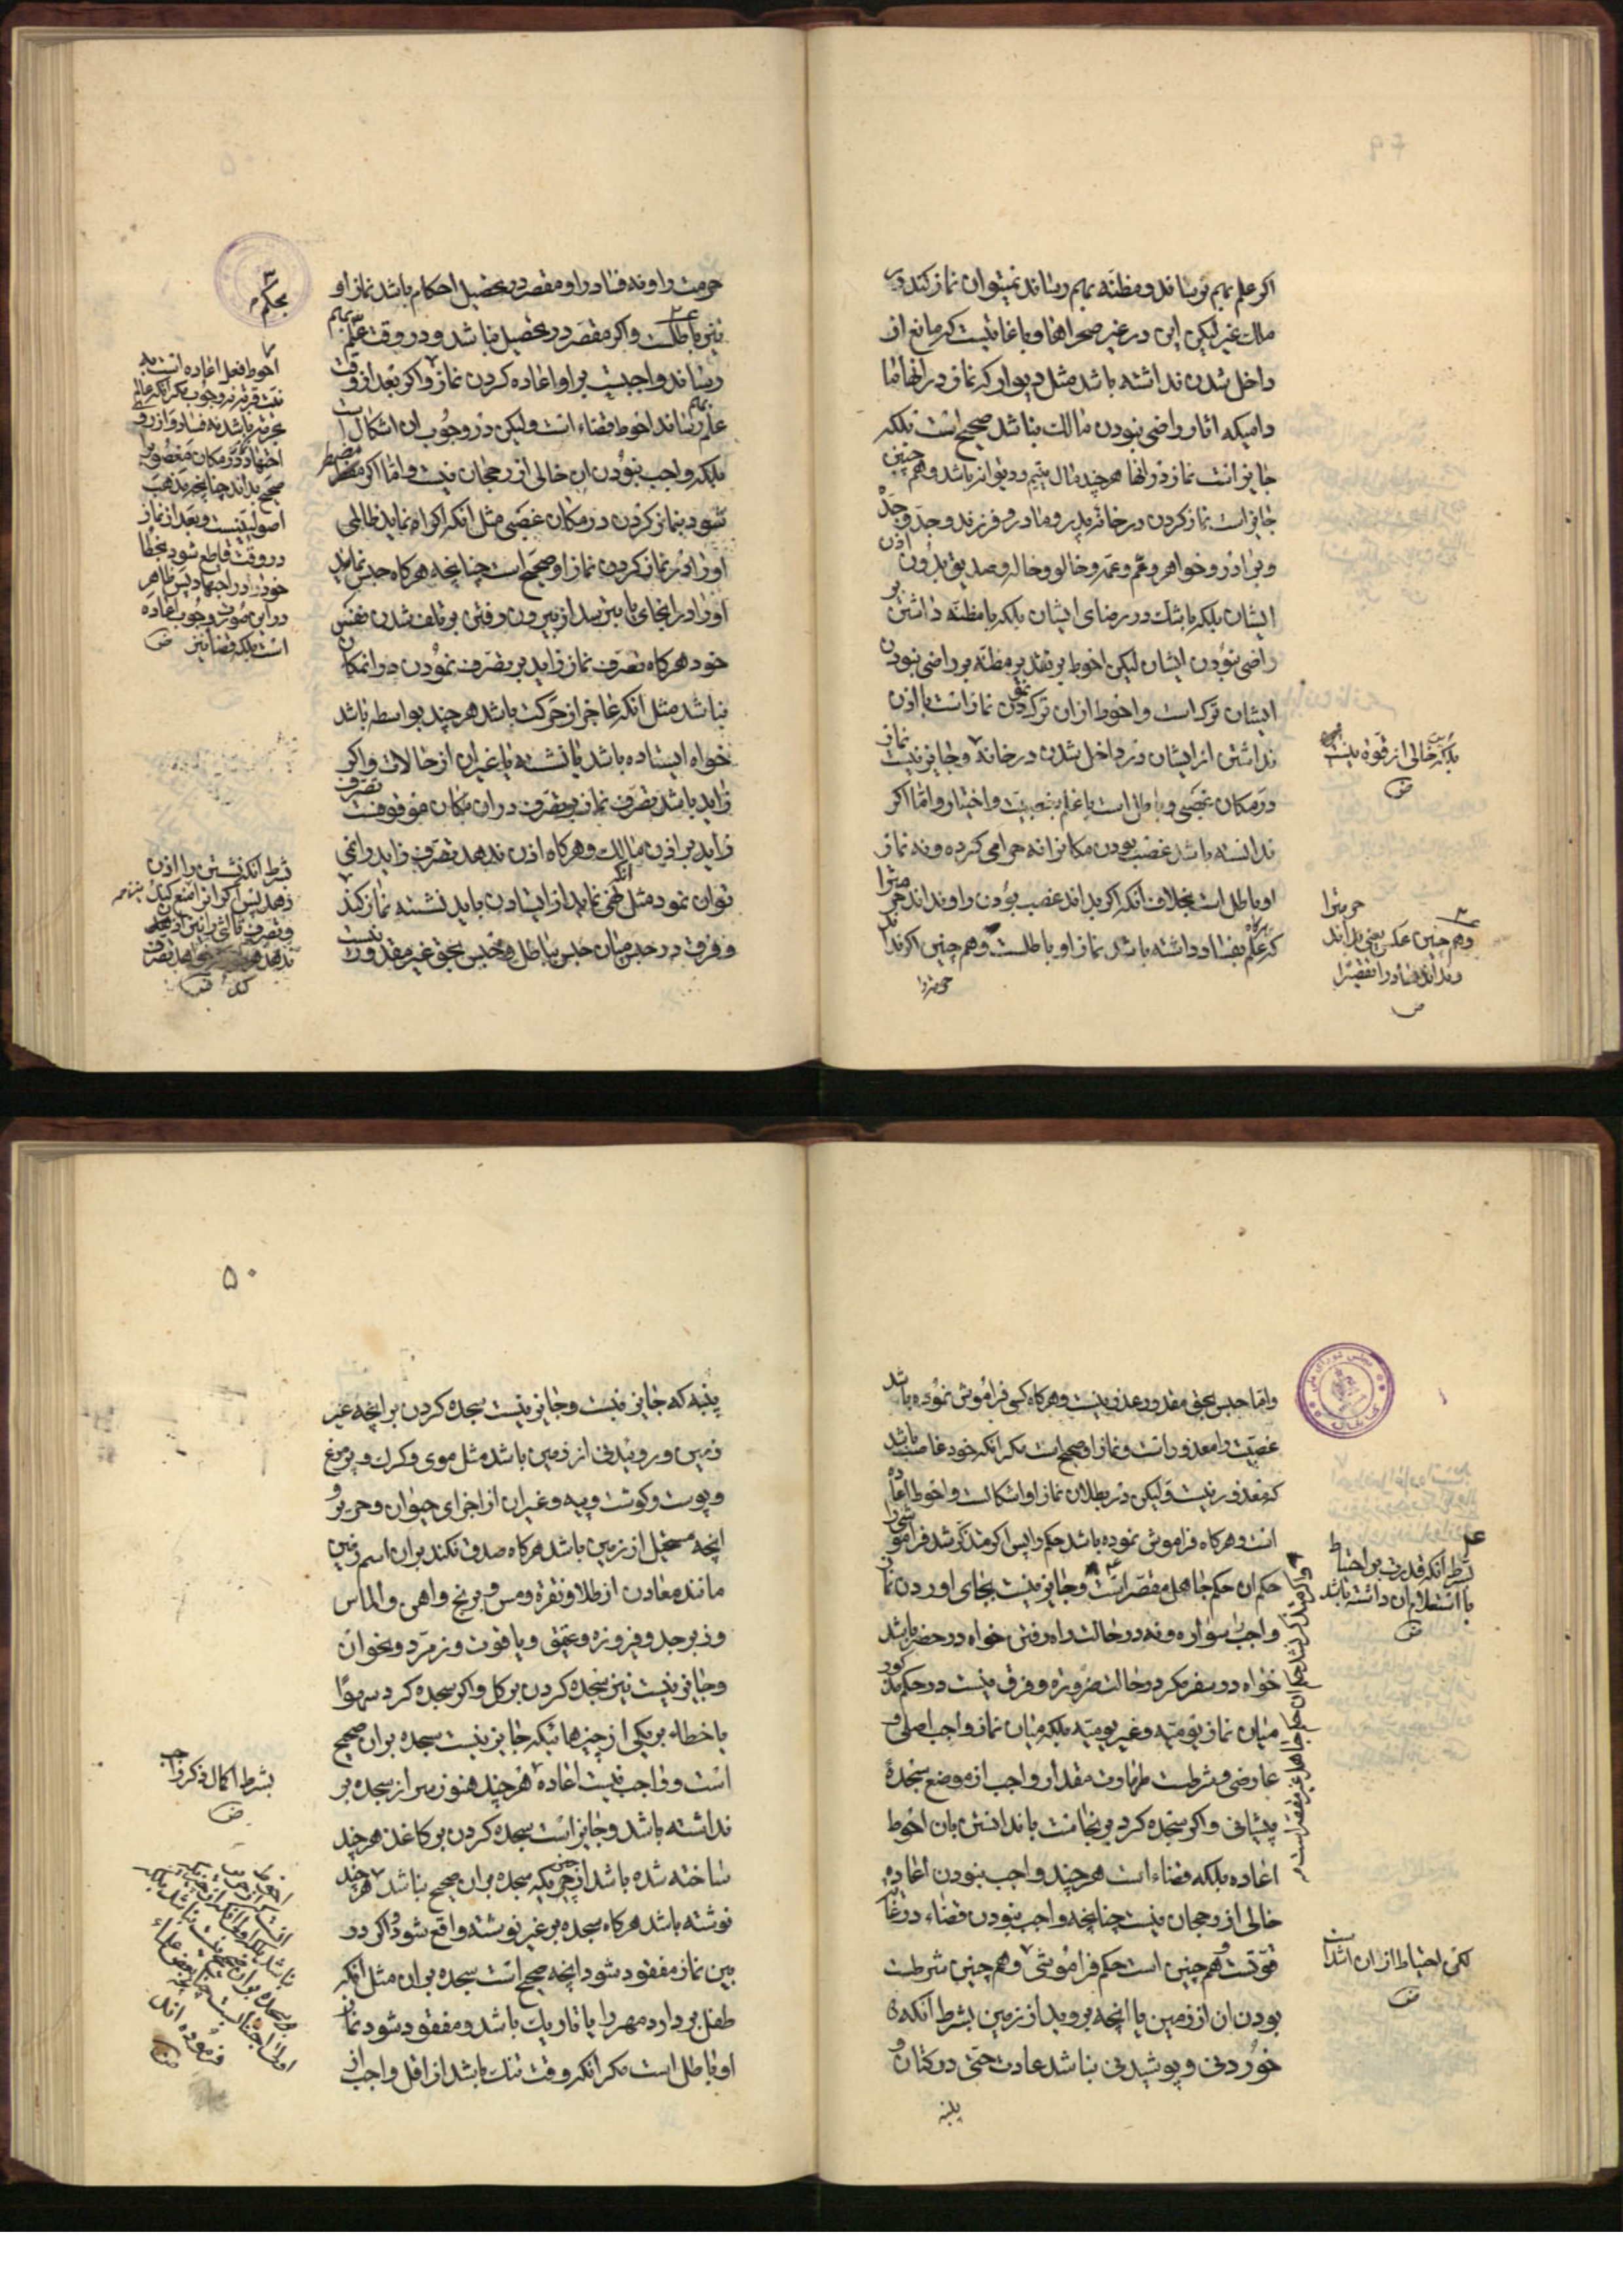 اکر علم بهم نرساند و مظنّه بهم رساند نمیتوان نماز کند در
ملک غیر لیکن این در غیر صحراها و باغاتیست که مانع از
داخل شدن نداشته باشد مثل دیوار که نماز در انها ما
دامیکه اثار راضی نبودن مالک نباشد صحیح است بلکه
جایز است نماز در انها هرچند مال یتیم و دیوانه باشد و هم چنین
جایز است نماز کردن در خانه پدر و مادر و فرزند و جدّ و جدّه
و برادر و خواهر و عمّ و عمّه و خالو و خاله و صدیق بدون اذن
ایشان بلکه با شک در رضای ایشان بلکه با مظنّه داشتن بر
راضی نبودن ایشان لیکن احوط بر تقدیر مظنّه بر راضی نبودن
ایشان ترک است و احوط از ان ترک کردن نماز است با اذن
نداشتن از ایشان در داخل شدن در خانه و جایز نیست نماز
در مکان غصبی و باطل است با علم بغصبیّت و اختیار و امّا اکر
ندانسته باشد غصب بودن مکانرا نه حرامی کرده و نه نماز
او باطل است بخلاف انکه اکر بداند غصب بودن را و نداند حرمترا
که علم بفساد داشته باشد نماز او باطلست و هم چنین اکر نداند
حرمترا
بلکه خالی از قوة نیست
ض
۳
حرمترا
و هم چنین عکس یعنی بداند
و نداند فساد را تقصیرًا
ض
حرمت را و نه فساد را و مقصر در تحصیل احکام باشد نماز او
نیز باطلست و اکر مقصّر در تحصیل نباشد و در وقت علم بهم
رساند واجبست بر او اعاده کردن نماز و اکر بعد از وقت
علم بهم رساند احوط قضاء است ولیکن در وجوب ان اشکال است
بلکه واجب نبودن ان خالی از رجحان نیست و امّا اکر مضطر
شود بنماز کردن در مکان غصبی مثل انکه اکراه نماید ظالمی
او را در نماز کردن نماز او صحیح است چنانچه هرکاه حبس نماید
او را در انجای یا بترسد از بیرون رفتن بر تلف شدن نفس
خود هرکاه تصرّف نماز زاید بر تصرّف نمودن در انمکان
نباشد مثل انکه عاجز از حرکت باشد هرچند بواسطه باشد
خواه ایستاده باشد یا نشسته یا غیر ان از حالات و اکر
زاید باشد تصرّف نماز بر تصرّف در ان مکان موقوفست
زاید بر اذن مالک و هرکاه اذن ندهد تصرّف زاید را نمی
توان نمود مثل انکه نهی نماید از ایستادن باید نشسته نماز کند
و فرق در حبس میان حبس بباطل و حبس بحق غیر مقدور نیست
۳
بحکم
احوط فعل اعاده است به
صحیح بداند چنانچه مذهب
اصولیینست و بعد از نماز
در وقت قاطع شود بخطا
خود در اجتهاد پس ظاهر
در این صورت وجوب اعاده
است بلکه قضا نیز ض
بشرط انکه نشستن را اذن
دهد پس اکر از ان منع کند
ض
وامّا حبس بحق مقدور عذر نیست و هرکاه کسی فراموش نموده باشد
غصبیّت را معذور است و نماز او صحیح است مکر انکه خود غاصب باشد
که معذور نیست ولیکن در بطلان نماز او اشکالست و احوط اعاده
است و هرکاه فراموش نموده باشد حکم را پس اکر متذکر شد فراموشی را
حکم ان حکم جاهل مقصّر است و جایز نیست بجای اوردن نماز
واجب سواره و نه در حالت راه رفتن خواه در حضر باشد
خواه در سفر مکر در حالت ضروره و فرق نیست در حکم مذکور
میان نماز یومیّه و غیر یومیّه بلکه میان نماز واجب اصلی و
عارضی و شرطست طهارت مقدار واجب از موضع سجدهٔ
پیشانی و اکر سجده کرد بر نجاست با ندانستن بان احوط
اعاده بلکه قضاء است هرچند واجب نبودن اعاده
خالی از رجحان نیست چنانچه واجب نبودن قضاء در غایت
قوّتست و هم چنین است حکم فراموشی و هم چنین شرطست
بودن ان از زمین یا انچه بروید از زمین بشرط انکه
خوردنی و پوشیدنی نباشد عادت حتی در کتان و
پنبه
۴
بشرط انکه قدرت بر احتیاط
یا استعلام ان داشته باشد
ض
و اکر متذکر نشد حکم ان حکم جاهل غیر مقصّر است
لکن احتیاط از ان اشد است
ض
۵۰
پنبه که جایز نیست و جایز نیست سجده کردن بر انچه غیر
زمین و روئیدنی از زمین باشد مثل موی و کرک و پر مرغ
و پوست و کوشت و پیه و غیر ان از اجزای حیوان و حریر و
انچه مستحیل از زمین باشد هرکاه صدق نکند بر ان اسم زمین
مانند معادن از طلا و نقره و مس و برنج و اهن و الماس
و زبرجد و فیروزه و عقیق و یاقوت و زمرّد و نحو ان
و جایز نیست نیز سجده کردن بر کل و اکر سجده کرد سهوًا
یا خطاء بر یکی از چیزهائیکه جایز نیست سجده بر ان صحیح
است و واجب نیست اعاده هرچند هنوز سر از سجده بر
نداشته باشد و جایز است سجده کردن بر کاغذ هرچند
ساخته شده باشد از چیزیکه سجده بر ان صحیح نباشد هرچند
نوشته باشد هرکاه سجده بر غیر نوشته واقع شود و اکر در
بین نماز مفقود شود انچه صحیح است سجده بر ان مثل انکه
طفل بردارد مهر را یا تاریک باشد و مفقود شود نماز
او باطل است مکر انکه وقت تنک باشد از اقل واجب از
بشرط اکمال ذکر واجب
ض
فرموده اند